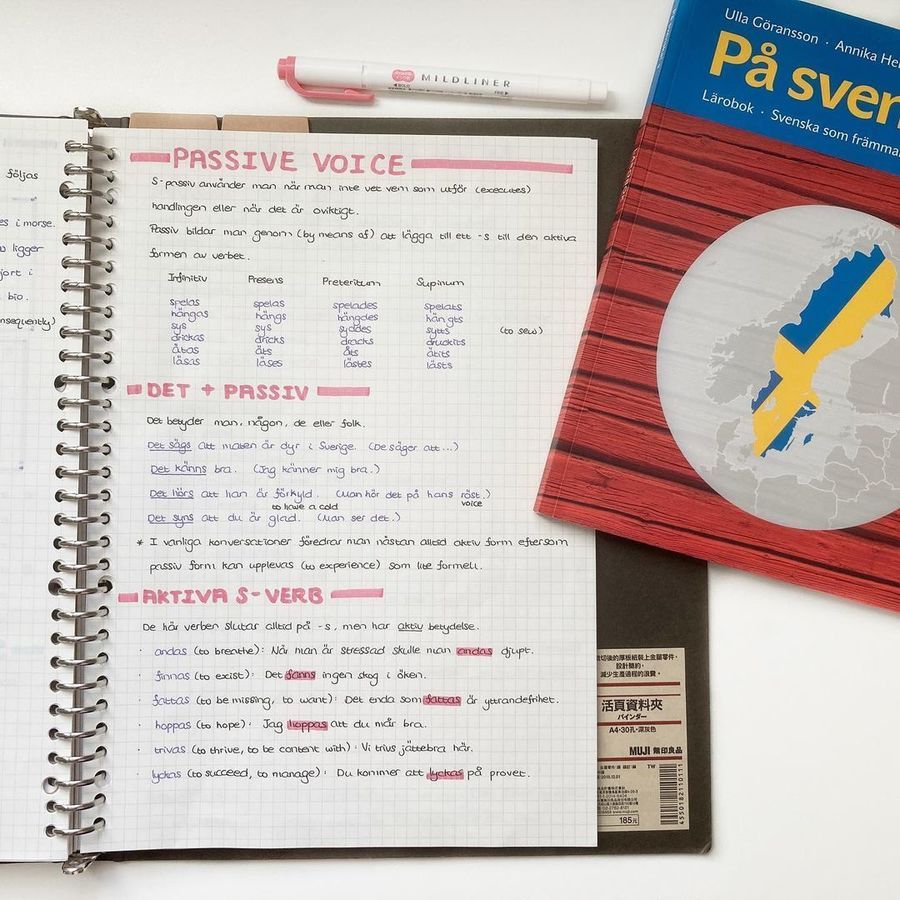 följas
i morse.
ligger
i
bio.
PASSIVE VOICE
S-passiv använder man när man inte vet vem som utför (executes)
handlingen eller när det är oviktigt.
Passiv bildar man genom (by means of) att lägga till ett -s till den aktiva
formen av verbet.
Infinitiv Presens Preteritum Supinum
spelas spelas spelades spelats
hängas hängs hängdes hängts
sys sys syddes sytts (to sew)
drickas dricks dracks druckits
ätas äts åts ätits
läsas läses lästes lästs
DET + PASSIV
Det betyder man, någon, de eller folk.
Det sägs att maten är dyr i Sverige. (De säger att...)
Det känns bra. (Jag känner mig bra.)
Det hörs att han är förkyld. (Man hör det på hans röst.)
to have a cold voice
Det syns att du är glad. (Man ser det.)
* I vanliga konversationer föredrar man nästan alltid aktiv form eftersom
passiv form kan upplevas (to experience) som lite formell.
AKTIVA S-VERB
De här verben slutar alltid på -s, men har aktiv betydelse.
· andas (to breathe): När man är stressad skulle man andas djupt.
· finnas (to exist): Det fanns ingen skog i öken.
· fattas (to be missing, to want): Det enda som fattas är yttrandefrihet.
· hoppas (to hope): Jag hoppas att du mår bra.
· trivas (to thrive, to be content with): Vi trivs jättebra här.
· lyckas (to succeed, to manage): Du kommer att lyckas på provet.
MILDLINER
Ulla Göransson · Annika
På sven
Lärobok · Svenska som främma
設計簡約,
減少生產過程的浪費。
活頁資料夾
バインダー
A4·30孔·深灰色
MUJI 無印良品
TW
185元
4550182110111